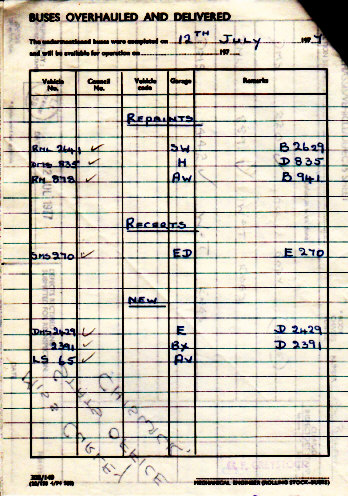 BUSES OVERHAULED AND DELIVERED
The undermentioned buses were completed on 12TH JULY 1977
and will be available for operation on 197
Vehicle No. Council No. Vehicle code Garage Remarks
REPAINTS
RML 2641 ✓ SW B2629
DMS 835 ✓ H D835
RM 878 ✓ AW B941
RECERTS
SMS 270 ✓ ED E 270
NEW
DMS 2429 ✓ E D 2429
2391 ✓ BX D 2391
LS 65 ✓ AV
CHISWICK
STATS OFFICE
MISS CURREY
MECHANICAL ENGINEER (ROLLING STOCK—BUSES)